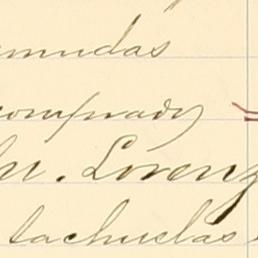 mudas
comprados
M. Lorenz
tachuelas